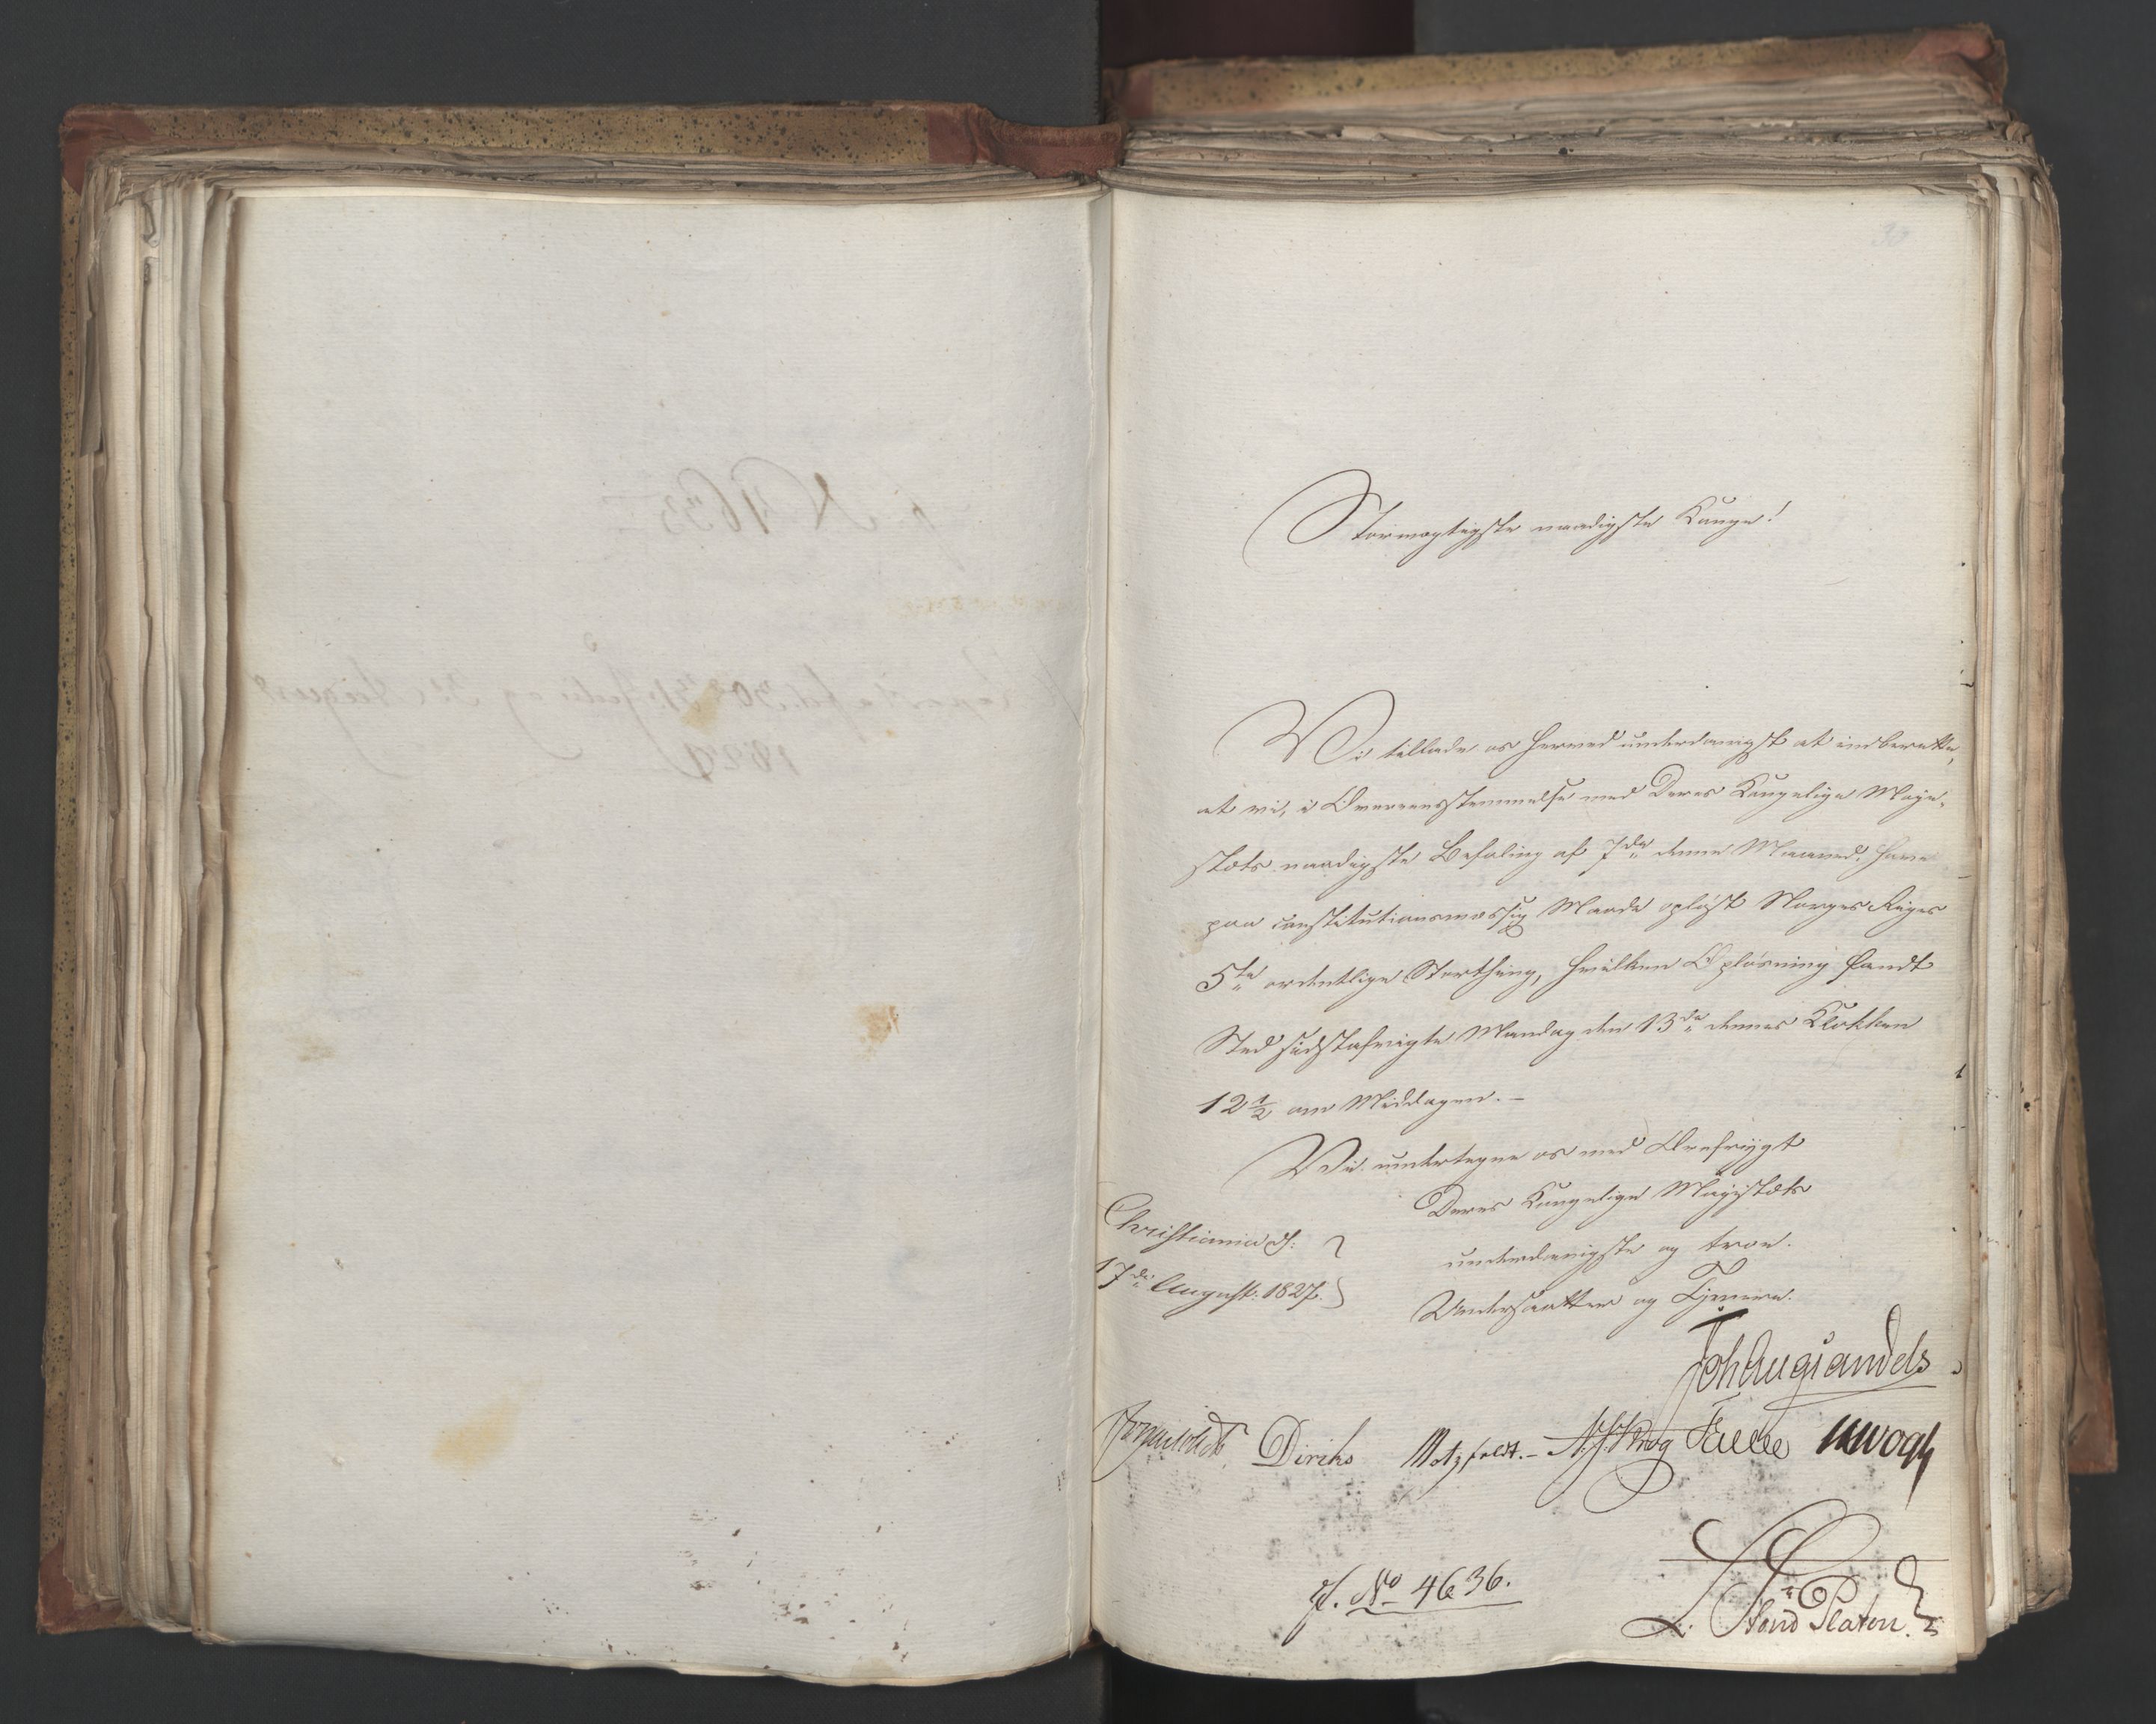 30
Stormægtigste naadigste Konge!
Vi tillade os herved underdanigst at indberette,
at vi, i Overeensstemmelse med Deres Kongelige Maje-
stæts naadigste Befaling af 7de denne Maaned, have
paa constitutionsmæssig Maade opløst Norges Riges
5te ordentlige Storthing, hvilken Opløsning fandt
Sted sidstafvigte Mandag den 13de dennes Klokken
12 1/2 om Middagen. –
Vi undertegne os med Ærefrygt
Deres Kongelige Majestæts
underdanigste og troe
Undersaatter og Tjenere.
Christiania d:
17de August: 1827.
Joh Aug Sandels
Diriks Motzfeldt. – Krog Fasting JHVogt
L. Stoud Platou.
J. No 4636.